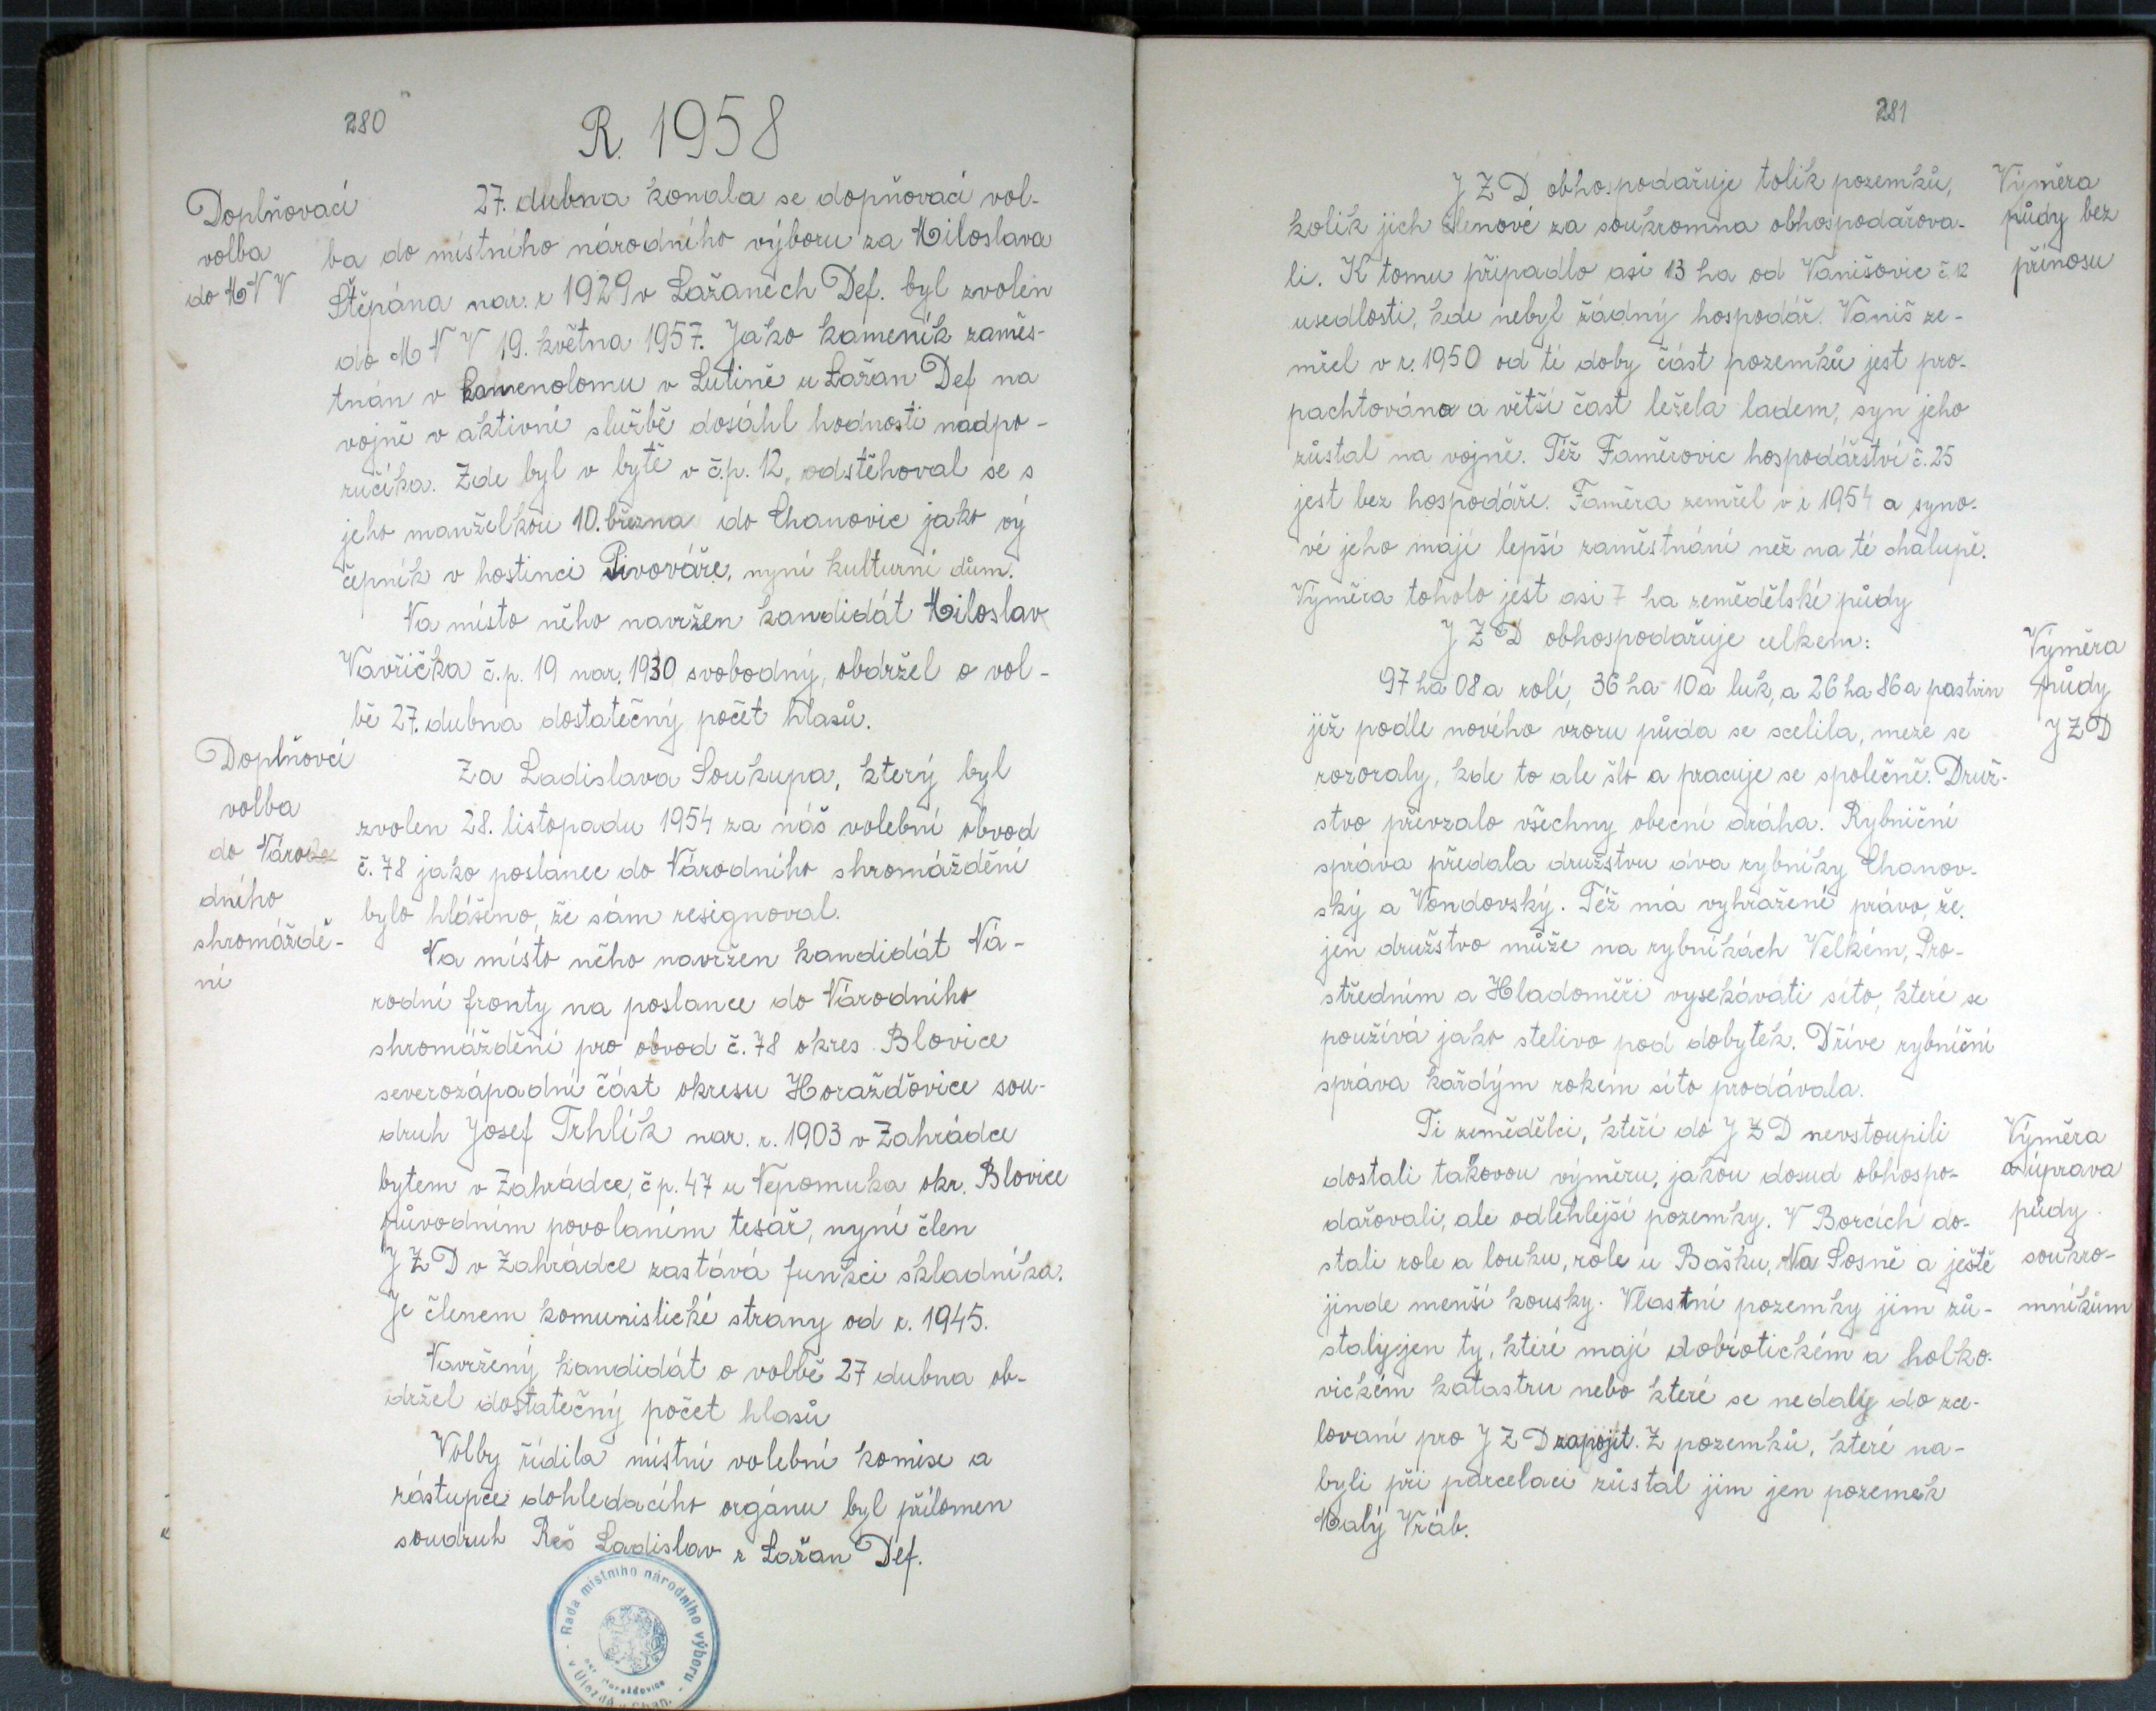 280
R. 1958
Doplňovací
volba
do MNV
27. dubna konala se dopňovací vol-
ba do místního národního výboru za Miloslava
Štěpána nar. r 1929 v Lažanech Def. byl zvolen
do MNV 19. května 1957. Jako kameník zaměs-
tnán v kamenolomu v Lutině u Lažan Def na
vojně v aktivní službě dosáhl hodnosti nadpo-
ručíka. Zde byl v bytě v č.p. 12, odstěhoval se s
jeho manželkou 10. března do Chanovic jako vý
čepník v hostinci Pivováře, nyní kulturní dům.
Na místo něho navržen kandidát Miloslav
Vavřička č.p. 19 nar. 1930 svobodný, obdržel o vol-
bě 27. dubna dostatečný počet hlasů.
Doplňovcí
volba
do Náro
dního
shromáždě-
ní
Za Ladislava Soukupa, který byl
zvolen 28. listopadu 1954 za náš volební obvod
č. 78 jako poslanec do Národního shromáždění
bylo hlášeno, že sám resignoval.
Na místo něho navržen kandidát Ná-
rodní fronty na poslance do Národního
shromáždění pro obvod č. 78 okres Blovice
severozápadní část okresu Horažďovice sou-
druh Josef Trhlík nar. r. 1903 v Zahrádce
bytem v Zahrádce, č p. 47 u Nepomuka okr. Blovice
původním povoláním tesař, nyní člen
JZD v Zahrádce zastává funkci skladníka.
Je členem komunistické strany od r. 1945.
Navržený kandidát o volbě 27 dubna ob-
držel dostatečný počet hlasů
Volby řídila místní volební komise a
zástupce dohledacího orgánu byl přítomen
soudruh Reš Ladislav z Lažan Def.
Rada místního národního výboru
v Újezdě u Chan.
okr. Horažďovice
281
JZD obhospodařuje tolik pozemků,
kolik jich členové za soukromna obhospodařova-
li. K tomu připadlo asi 13 ha od Vanišovic č. 12
usedlosti, kde nebyl žádný hospodář. Vaniš ze-
mřel v r. 1950 od té doby část pozemků jest pro-
pachtována a větší čast ležela ladem, syn jeho
zůstal na vojně. Též Faměrovic hospodářství č. 25
jest bez hospodáře. Faměra zemřel v r 1954 a syno-
vé jeho mají lepší zaměstnání než na té chalupě.
Výměra toholo jest asi 7 ha zemědělské půdy
Výměra
půdy bez
přínosu
JZD obhospodařuje celkem:
97 ha 08 a rolí, 36 ha 10 a luk, a 26 ha 86 a pastvin
již podle nového vzoru půda se scelila, meze se
rozoraly, kde to ale šlo a pracuje se společně. Druž-
stvo převzalo všechny obecní dráha. Rybniční
správa předala družstvu dva rybníky Chanov-
ský a Vondovský. Též má vyhražené právo, že
jen družstvo může na rybníkách Velkém, Pro-
středním a Hladoměři vysekávati síto, které se
používá jako stelivo pod dobytek. Dříve rybniční
správa každým rokem síto prodávala.
Výměra
půdy
JZD
Ti zemědělci, kteří do JZD nevstoupili
dostali takovou výměru, jakou dosud obhospo-
dařovali, ale odlehlejší pozemky. V Borcích do-
stali role a louku, role u Bašku, Na Sosně a ještě
jinde menší kousky. Vlastní pozemky jim zů-
staly jen ty, které mají dobrotickém a holko-
vickém katastru nebo které se nedaly do sce-
lovaní pro JZD zapojit. Z pozemků, které na-
byli při parcelaci zůstal jim jen pozemek
Malý Vráb.
Výměra
a úprava
půdy
soukro-
mníkům